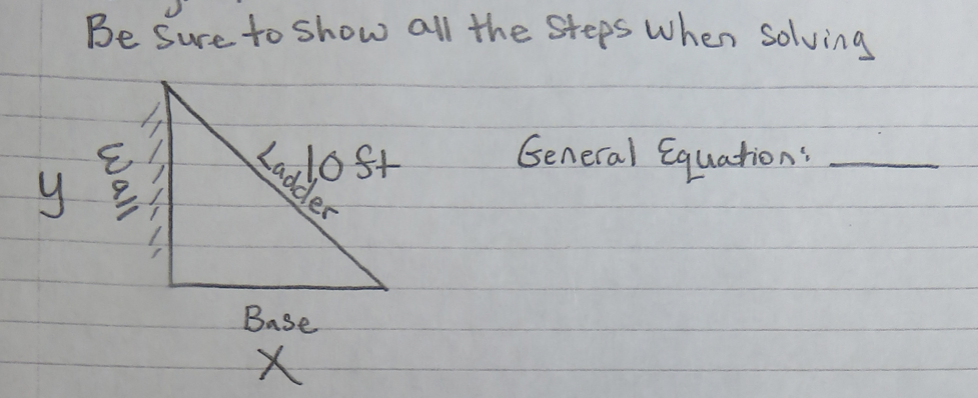 Be sure to show all the steps when solving
Wall
y
Ladder
10 ft
General Equation: ______
Base
X